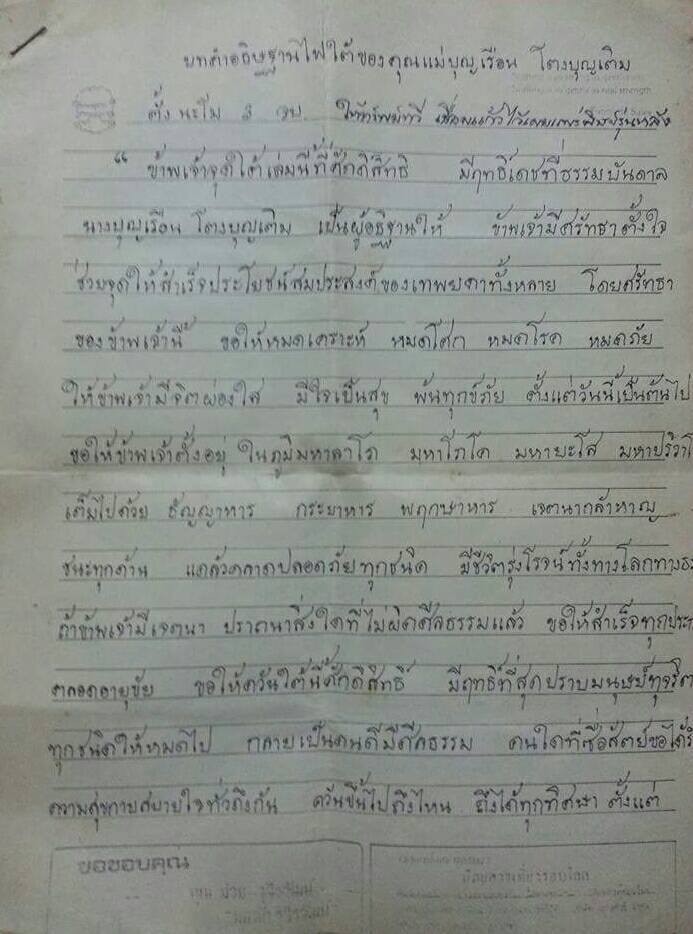 บทคำอธิษฐานไฟใต้ของคุณแม่บุญเรือน โตงบุญเติม
ตั้ง นะโม 3 จบ ให้ทรัพย์ทวี
" ข้าพเจ้าจุดใต้เล่มนี้ที่ศักดิ์สิทธิ มีฤทธิ์เดชที่ธรรมบันดาล
นางบุญเรือน โตงบุญเติม เป็นผู้อธิฐานให้ ข้าพเจ้ามีศรัทธาตั้งใจ
ช่วยจุดให้สำเร็จประโยชน์สมประสงค์ของเทพยดาทั้งหลาย โดยศรัทธา
ของข้าพเจ้านี้ ขอให้หมดเคราะห์ หมดโศก หมดโรค หมดภัย
ให้ข้าพเจ้ามีจิตผ่องใส มีใจเป็นสุข พ้นทุกข์ภัย ตั้งแต่วันนี้เป็นต้นไป
ขอให้ข้าพเจ้าตั้งอยู่ ในภูมิมหาลาโภ มหาโภโค มหายะโส
เต็มไปด้วย ธัญญาหาร กระยาหาร พฤกษาหาร เจตนากล้าหาญ
ชนะทุกด้าน แคล้วคลาดปลอดภัยทุกชนิด มีชีวิตรุ่งโรจน์ทั้งทางโลกทาง
ถ้าข้าพเจ้ามีเจตนา ปราถนาสิ่งใดที่ไม่ผิดศีลธรรมแล้ว ขอให้สำเร็จทุก
ตลอดอายุขัย ขอให้ควันใต้นี้ศักดิ์สิทธิ์ มีฤทธิ์ที่สุดปราบมนุษย์ทุจริต
ทุกชนิดให้หมดไป กลายเป็นคนดีมีศีลธรรม คนใดที่ซื่อสัตย์ขอได้รั
ความสุขกายสบายใจทั่วถึงกัน ควันขึ้นไปถึงไหน ถึงได้ทุกทิศษา ตั้งแต่
ขอขอบคุณ